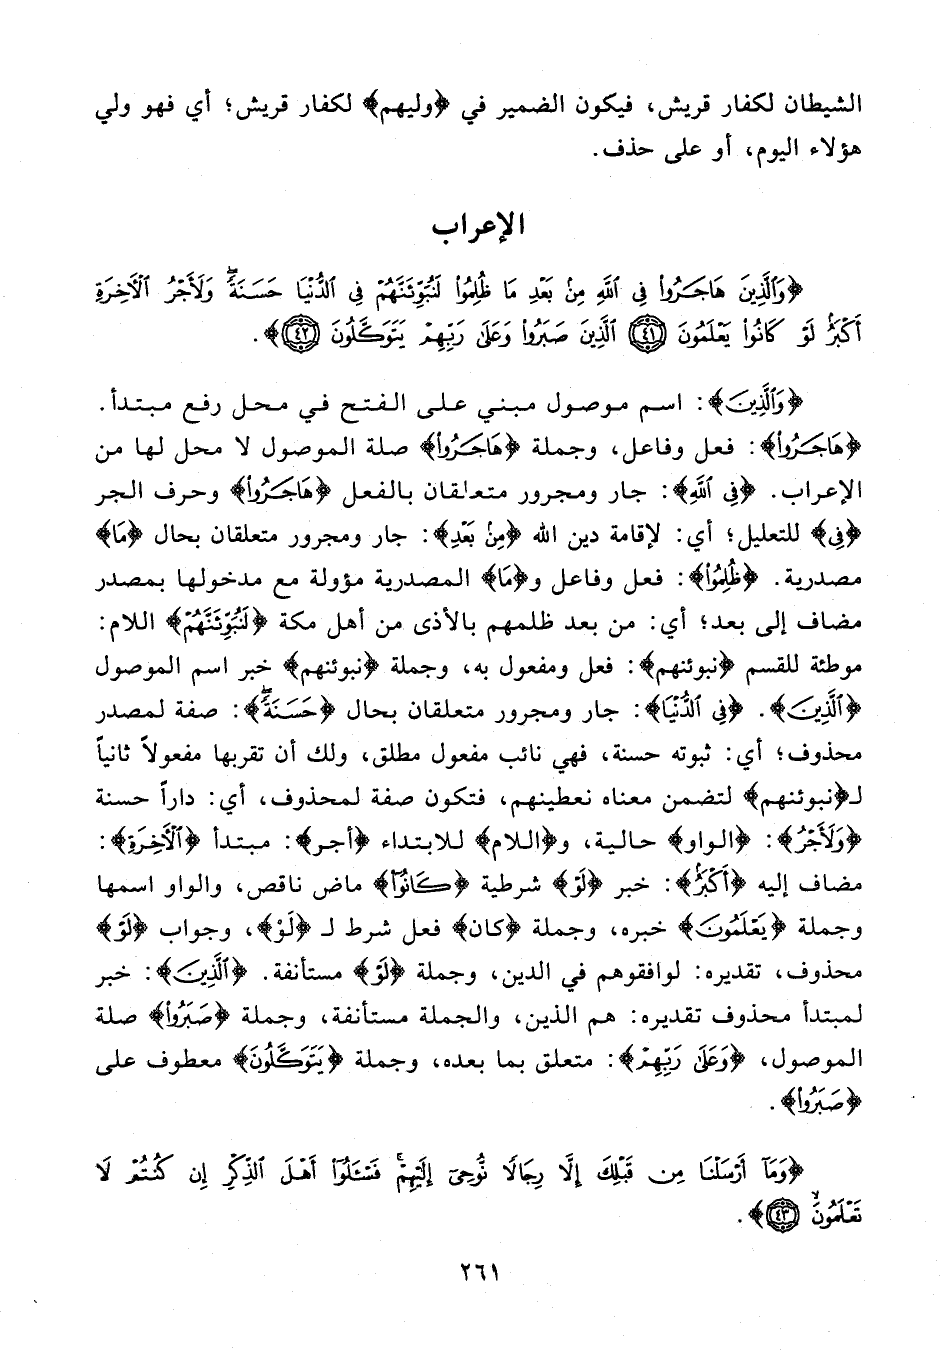 الشيطان لكفار قريش، فيكون الضمير في ﴿وليهم﴾ لكفار قريش؛ أي فهو ولي
هؤلاء اليوم، أو على حذف.
الإعراب
﴿وَٱلَّذِينَ هَاجَرُوا۟ فِى ٱللَّهِ مِنۢ بَعْدِ مَا ظُلِمُوا۟ لَنُبَوِّئَنَّهُمْ فِى ٱلدُّنْيَا حَسَنَةً ۖ وَلَأَجْرُ ٱلْـَٔاخِرَةِ
أَكْبَرُ ۚ لَوْ كَانُوا۟ يَعْلَمُونَ ٤١ ٱلَّذِينَ صَبَرُوا۟ وَعَلَىٰ رَبِّهِمْ يَتَوَكَّلُونَ ٤٢﴾.
﴿وَٱلَّذِينَ﴾: اسم موصول مبني على الفتح في محل رفع مبتدأ.
﴿هَاجَرُوا۟﴾: فعل وفاعل، وجملة ﴿هَاجَرُوا۟﴾ صلة الموصول لا محل لها من
الإعراب. ﴿فِى ٱللَّهِ﴾: جار ومجرور متعلقان بالفعل ﴿هَاجَرُوا۟﴾ وحرف الجر
﴿فِى﴾ للتعليل؛ أي: لإقامة دين الله ﴿مِنۢ بَعْدِ﴾: جار ومجرور متعلقان بحال ﴿مَا﴾
مصدرية. ﴿ظُلِمُوا۟﴾: فعل وفاعل و﴿مَا﴾ المصدرية مؤولة مع مدخولها بمصدر
مضاف إلى بعد؛ أي: من بعد ظلمهم بالأذى من أهل مكة ﴿لَنُبَوِّئَنَّهُمْ﴾ اللام:
موطئة للقسم ﴿نبوئنهم﴾: فعل ومفعول به، وجملة ﴿نبوئنهم﴾ خبر اسم الموصول
﴿ٱلَّذِينَ﴾. ﴿فِى ٱلدُّنْيَا﴾: جار ومجرور متعلقان بحال ﴿حَسَنَةً ۖ﴾: صفة لمصدر
محذوف؛ أي: ثبوته حسنة، فهي نائب مفعول مطلق، ولك أن تقربها مفعولاً ثانياً
لـ﴿نبوئنهم﴾ لتضمن معناه نعطينهم، فتكون صفة لمحذوف، أي: داراً حسنة
﴿وَلَأَجْرُ﴾: ﴿الواو﴾ حالية، و﴿اللام﴾ للابتداء ﴿أجر﴾: مبتدأ ﴿ٱلْـَٔاخِرَةِ﴾:
مضاف إليه ﴿أَكْبَرُ ۚ﴾: خبر ﴿لَوْ﴾ شرطية ﴿كَانُوٓا۟﴾ ماض ناقص، والواو اسمها
وجملة ﴿يَعْلَمُونَ﴾ خبره، وجملة ﴿كان﴾ فعل شرط لـ ﴿لَوْ﴾، وجواب ﴿لَوْ﴾
محذوف، تقديره: لوافقوهم في الدين، وجملة ﴿لَوْ﴾ مستأنفة. ﴿ٱلَّذِينَ﴾: خبر
لمبتدأ محذوف تقديره: هم الذين، والجملة مستأنفة، وجملة ﴿صَبَرُوا۟﴾ صلة
الموصول، ﴿وَعَلَىٰ رَبِّهِمْ﴾: متعلق بما بعده، وجملة ﴿يَتَوَكَّلُونَ﴾ معطوف على
﴿صَبَرُوا۟﴾.
﴿وَمَآ أَرْسَلْنَا مِن قَبْلِكَ إِلَّا رِجَالًا نُّوحِىٓ إِلَيْهِمْ ۚ فَسْـَٔلُوٓا۟ أَهْلَ ٱلذِّكْرِ إِن كُنتُمْ لَا
تَعْلَمُونَ ۙ ٤٣﴾.
٢٦١